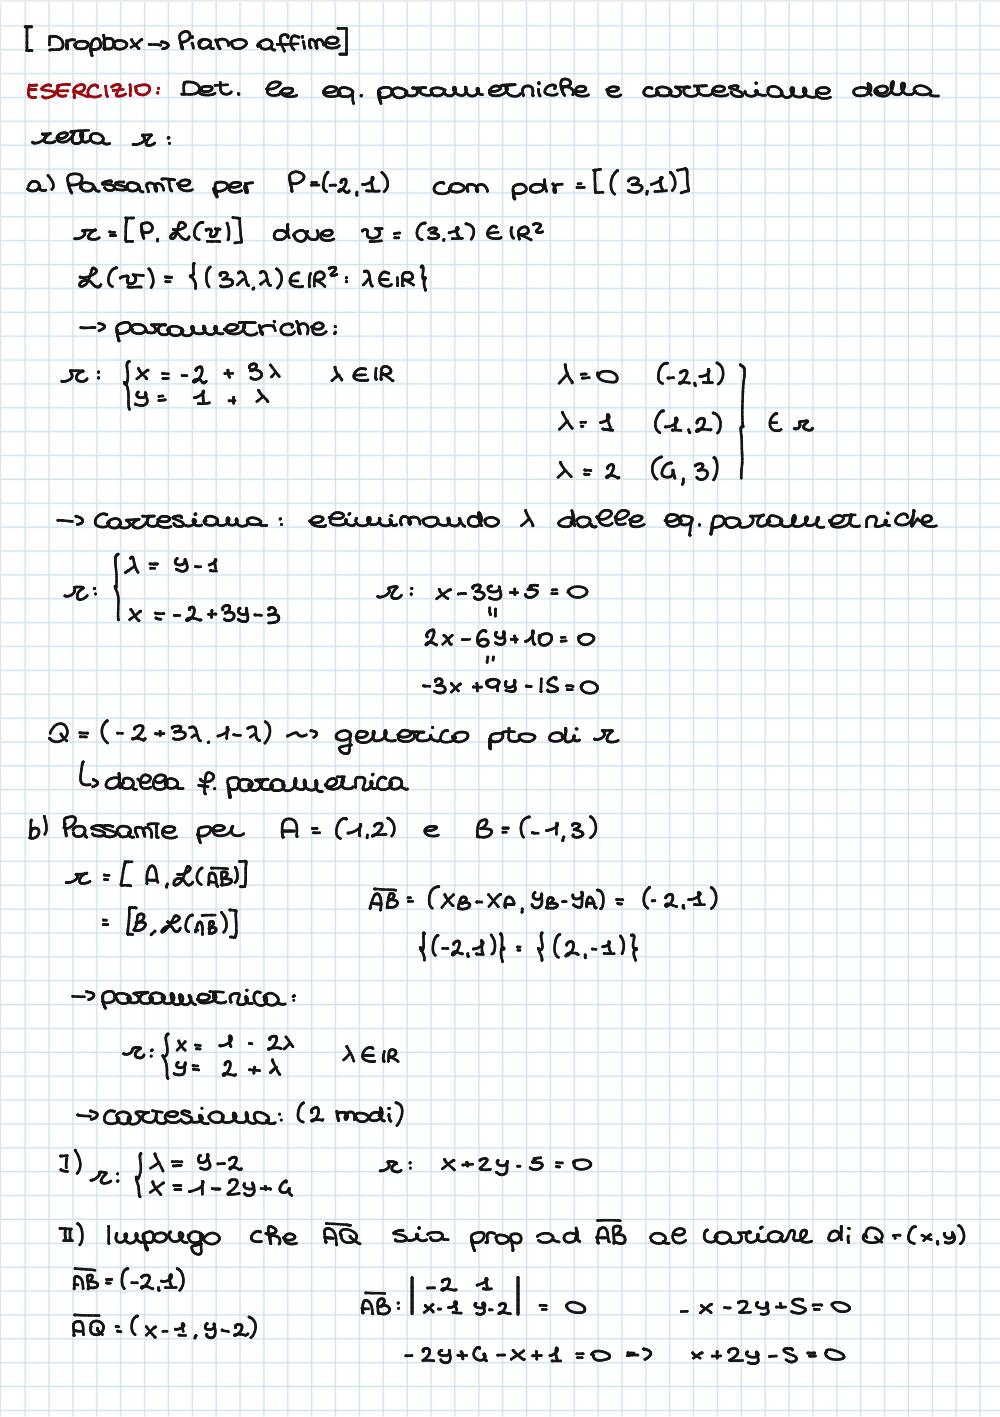 [ Dropbox → Piano affine]
ESERCIZIO: Det. le eq. parametriche e cartesiane della
retta r:
a) Passante per P=(-2,1) con pdr = [(3,1)]
r = [P, L(v)] dove v = (3,1) ∈ IR²
L(v) = {(3λ,λ) ∈ IR² : λ∈IR}
→ parametriche:
r: {x = -2 + 3λ λ∈IR
y = 1 + λ
λ=0 (-2,1)
λ=1 (1,2) } ∈ r
λ=2 (4,3)
→ cartesiana: eliminando λ dalle eq. parametriche
r: {λ = y-1
x = -2+3y-3
r: x-3y+5=0
"
2x-6y+10=0
"
-3x+9y-15=0
Q = (-2+3λ, 1-λ) ~> generico pto di r
↳ dalla f. parametrica
b) Passante per A = (1,2) e B = (-1,3)
r = [A, L(AB)]
= [B, L(AB)]
AB = (xB-xA, yB-yA) = (-2,1)
{(-2,1)} = {(2,-1)}
→ parametrica:
r: {x = 1 - 2λ
y = 2 + λ λ∈IR
→ cartesiana: (2 modi)
I) r: {λ = y-2
x = 1-2y+4
r: x+2y-5=0
II) Impongo che AQ sia prop ad AB al variare di Q=(x,y)
AB = (-2,1)
AQ = (x-1, y-2)
AB: |-2 1
x-1 y-2| = 0 -x-2y+5=0
-2y+4-x+1=0 => x+2y-5=0